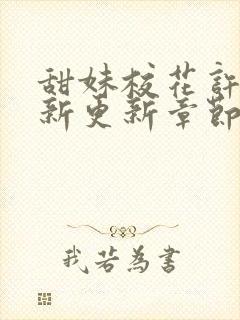 甜妹校花許
新更新章節
我若為書